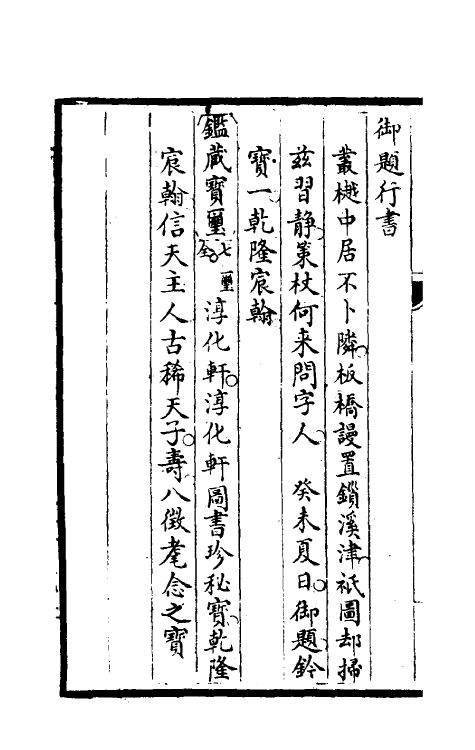 御題行書
叢樾中居不卜隣板橋謾置鎖溪津祇圖却掃
兹習静策杖何来問字人　癸未夏日御題鈐
寳一乾隆宸翰
鑑藏寳璽七璽全淳化軒淳化軒圖書珍秘寳乾隆
宸翰信天主人古稀天子壽八徵耄念之寳